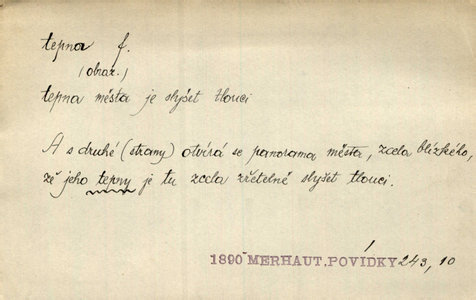 tepna f.
(obraz.)
tepna města je slyšet tlouci
A s druhé (strany) otvírá se panorama města, zcela blízkého,
že jeho tepny je tu zcela zřetelně slyšet tlouci.
1890 MERHAUT, POVÍDKY 243, 10